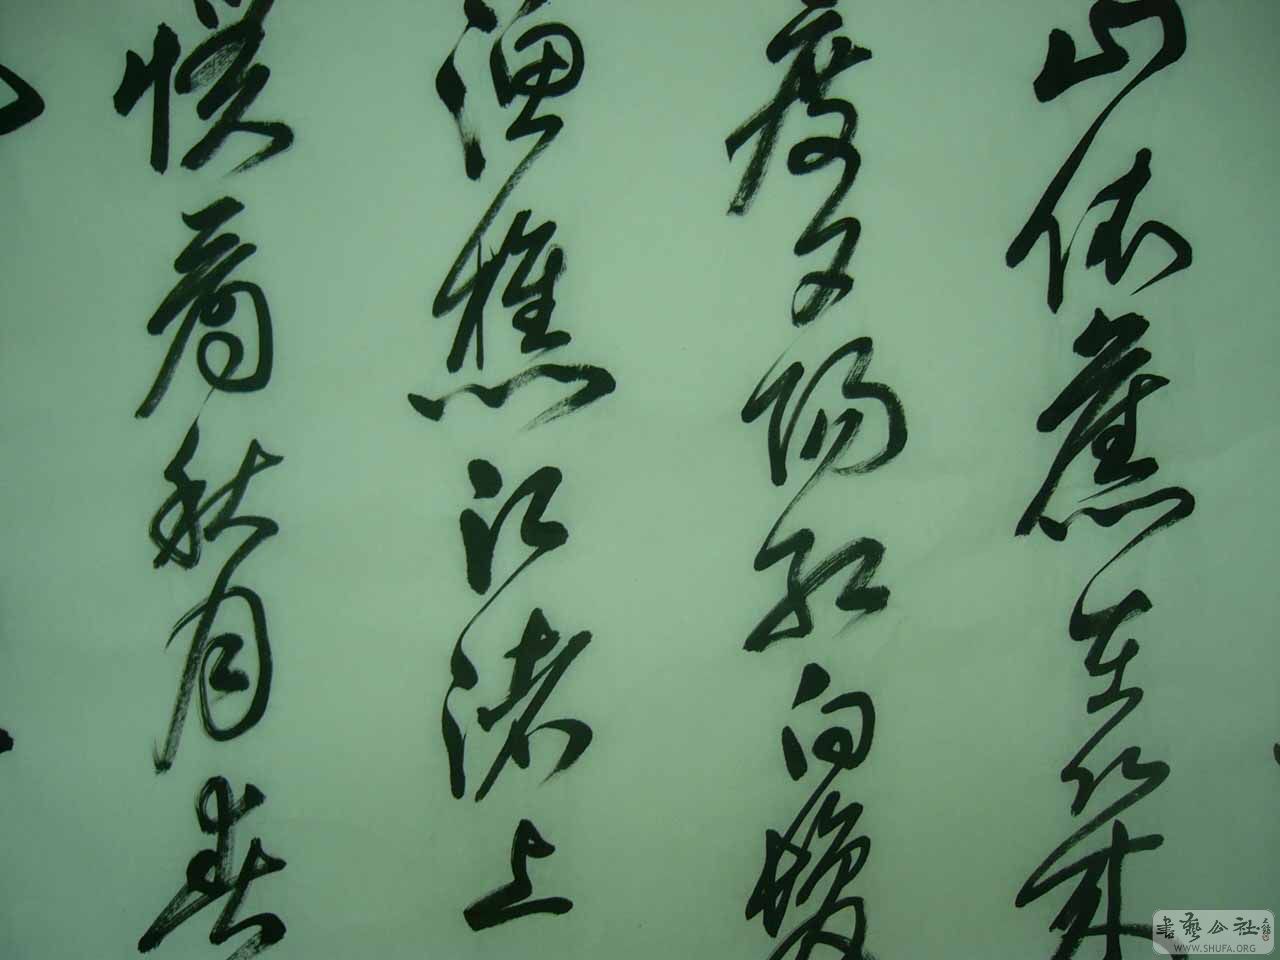 山依舊在幾
度夕陽紅白髮
漁樵江渚上
慣看秋月春
書藝公社
WWW.SHUFA.ORG